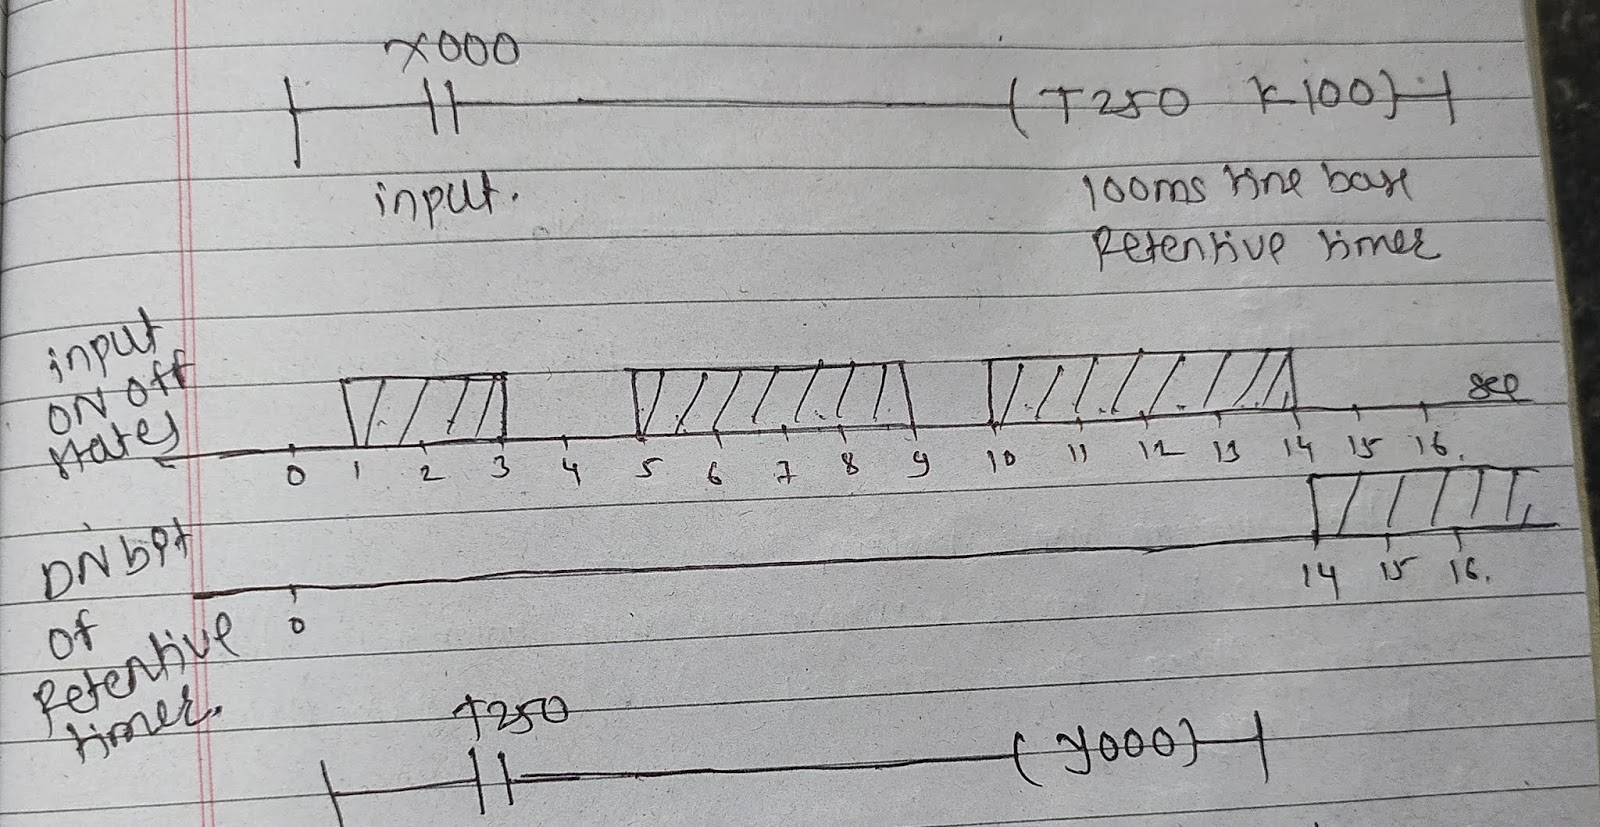 X000
(T250 K100)
input.
100ms time base
Retentive timer
input
ON Off
states
sec
0 1 2 3 4 5 6 7 8 9 10 11 12 13 14 15 16.
DN bit
of
Retentive
timer.
0 14 15 16.
T250
(Y000)